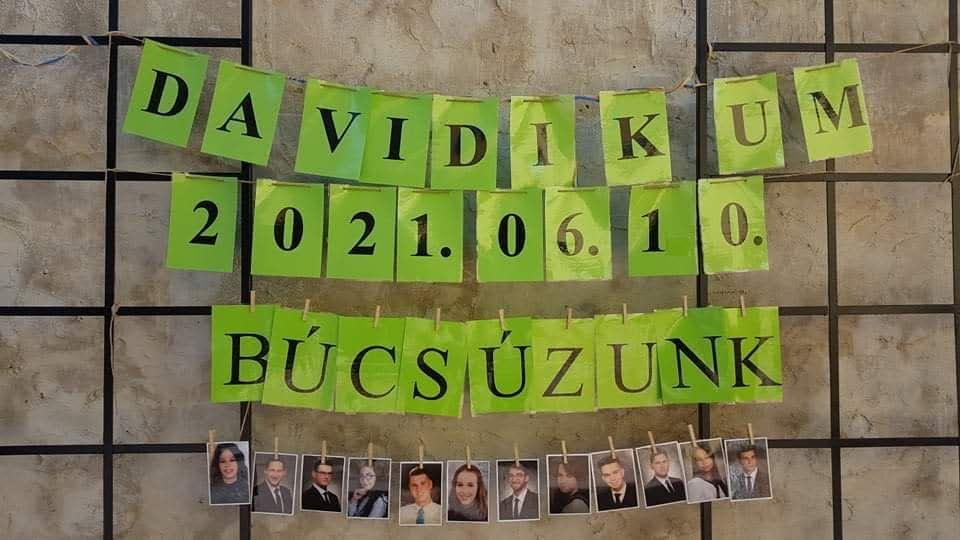 DAVIDIKUM
2021.06.10.
BÚCSÚZUNK